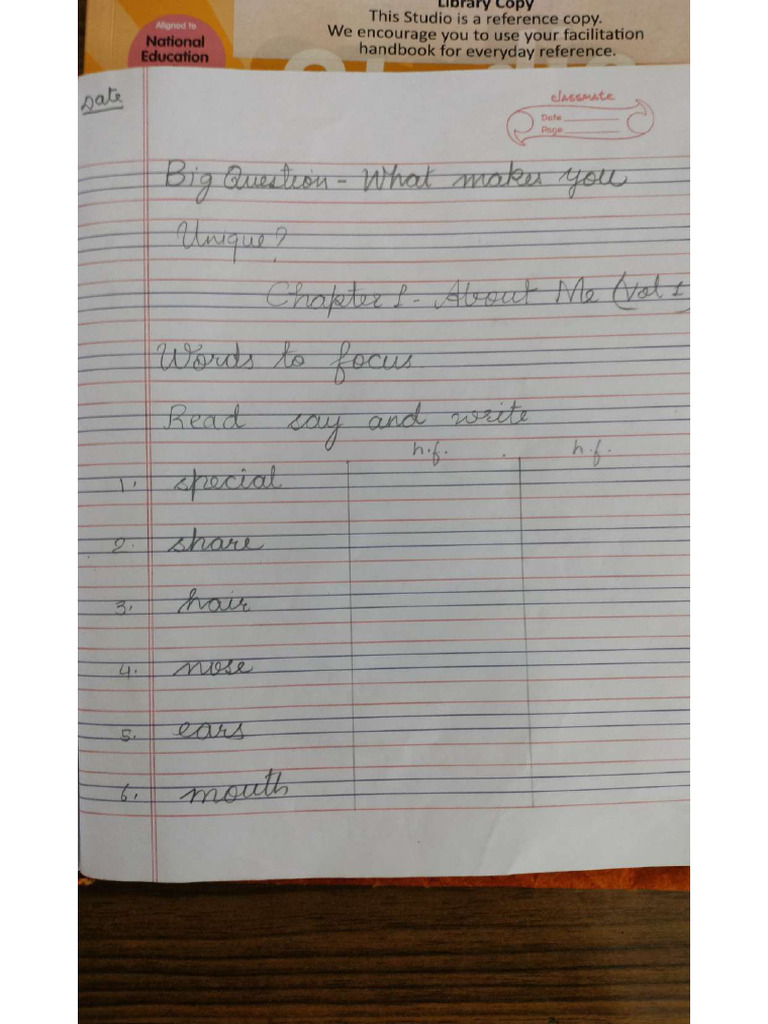 Library Copy
This Studio is a reference copy.
We encourage you to use your facilitation
handbook for everyday reference.
Aligned to
National
Education
Date
classmate
Date
Page
Big Question - What makes you
Unique?
Chapter 1 - About Me (Vol 1
Words to focus
Read say and write
h.f. h.f.
1. special
2. share
3. hair
4. nose
5. ears
6. mouth